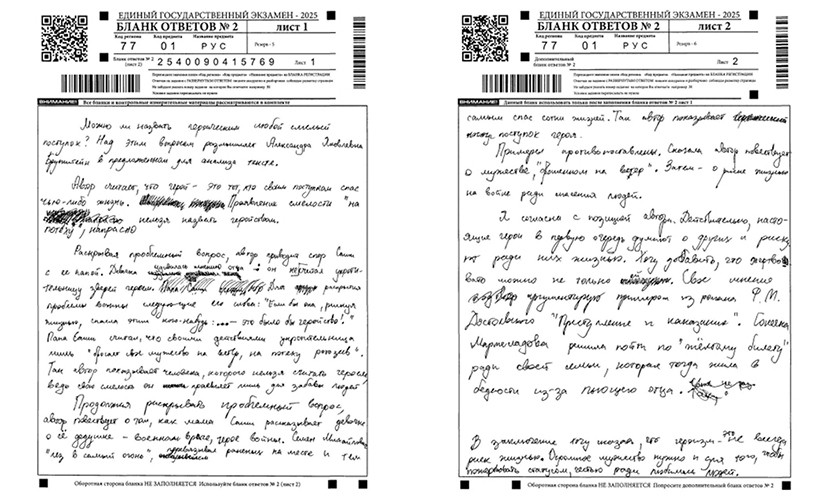 ЕДИНЫЙ ГОСУДАРСТВЕННЫЙ ЭКЗАМЕН - 2025
БЛАНК ОТВЕТОВ № 2 ЛИСТ 1
Код региона Код предмета Название предмета
77 01 РУС
Резерв - 5
Бланк ответов № 2 (лист 2) 2540090415769 Лист 1
ВНИМАНИЕ! Все бланки и контрольные измерительные материалы рассматриваются в комплекте
Можно ли назвать героическим любой смелый
поступок? Над этим вопросом размышляет Александра Яковлевна
Бруштейн в предложенном для анализа тексте.
Автор считает, что герой - это тот, кто своим поступком спас
чью-либо жизнь. Проявление смелости "на
потеху", напрасно нельзя назвать геройством.
Раскрывая проблемный вопрос, автор приводит спор Саши
с её папой. Девочка удивилась мнению отца - он не считал укроти-
тельницу зверей героем. Для раскрытия
проблемы важны следующие его слова: "Если бы она, рискуя
жизнью, спасла этим кого-нибудь... - это было бы геройство!"
Папа Саши считал, что своими действиями укротительница
лишь "бросает своё мужество на ветер, на потеху ротозеев".
Так автор показывает человека, которого нельзя считать героем,
ведь свою смелость он проявляет лишь для забавы людей
Продолжая раскрывать проблемный вопрос,
автор повествует о том, как мама Саши рассказывает девочке
о её дедушке - военном враче, герое войны. Семён Михайлович
"лез в самый огонь", перевязывал раненых на месте и тем
Оборотная сторона бланка НЕ ЗАПОЛНЯЕТСЯ Используйте бланк ответов № 2 (лист 2)
ЕДИНЫЙ ГОСУДАРСТВЕННЫЙ ЭКЗАМЕН - 2025
БЛАНК ОТВЕТОВ № 2 ЛИСТ 2
Код региона Код предмета Название предмета
77 01 РУС
Резерв - 6
Дополнительный бланк ответов № 2 Лист 2
ВНИМАНИЕ! Данный бланк использовать только после заполнения бланка ответов № 2 лист 1
самым спас сотни жизней. Так автор показывает героический
поступок героя.
Примеры противопоставлены. Сначала автор повествует
о мужестве, "брошенном на ветер". Затем - о риске жизнью
на войне ради спасения людей.
Я согласна с позицией автора. Действительно, насто-
ящие герои в первую очередь думают о других и риску-
ют ради них жизнью. Хочу добавить, что жертво
вать можно не только Своё мнение
аргументирую примером из романа Ф. М.
Достоевского "Преступление и наказание". Сонечка
Мармеладова решила пойти по "жёлтому билету"
ради своей семьи, которая тогда жила в
бедности из-за пьющего отца.
В заключение хочу сказать, что героизм - это не всегда
риск жизнью. Огромное мужество нужно и для того, чтобы
пожертвовать статусом, честью ради любимых людей.
Оборотная сторона бланка НЕ ЗАПОЛНЯЕТСЯ Попросите дополнительный бланк ответов № 2